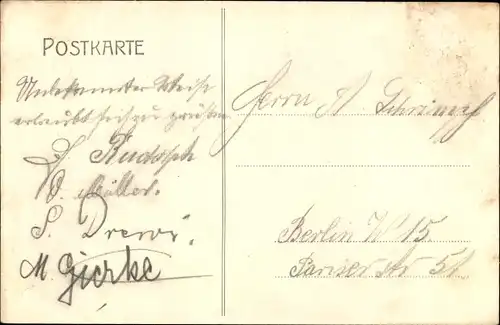 POSTKARTE
Unbekannter Weise
erlaubt sich zu grüßen
Rudolph
O. Müller.
S. Drews.
M. Gierke
Herrn A Schrimpf
Berlin W 15.
Pariser Str 51